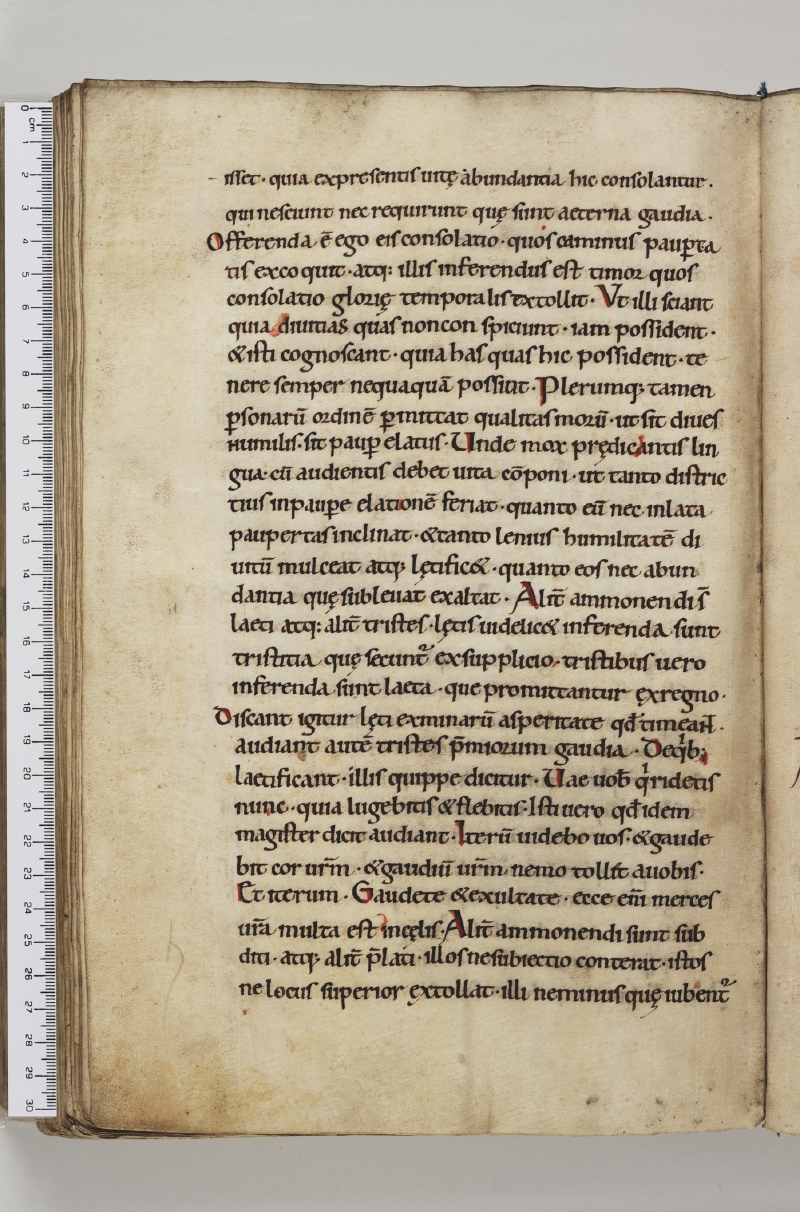 isset · quia ex presentis uitę abundantia hic consolantur .
qui nesciunt nec requirunt quę sunt aeterna gaudia ·
Offerenda ē ego eis consolatio · quos caminus paup̲ta
tis excoquit · atq: illis inferendus est timor quos
consolatio glorię temporalis extollit · Vt illi sciant
quia diuitias quas non conspiciunt · iam possident ·
& isti cognoscant · quia has quas hic possident · te
nere semper nequaquā possint · Plerumq; tamen
p̲sonarū ordinē p̲mittat qualitas morū · ut sit diues
humilis · sit paup̲ elatus · Unde mox prędicantis lin
gua · cū audientis debet uita cōponi · ut tanto distric
tius in paup̲e elationē feriat · quanto eū nec inlata
paupertas inclinat · & tanto lenius humilitatē di
uitū mulceat atq; lętific& · quanto eos nec abun
dantia quę subleuat exaltat · Alit̄ ammonendi s̄
laeti atq: alit̄ tristes · lętis uidelic& inferenda sunt
tristitia quę secunt᷑ ex supplicio · tristibus uero
inferenda sunt laeta · que promittantur ex regno ·
Discant igitur lęti ex minarū asperitate qđ timeant ·
audiant autē tristes p̄miorum gaudia · De qⁱb;
laetificant · illis quippe dicitur · Uae uob̄ qⁱ ridetis
nunc · quia lugebitis & flebitis · Isti uero qđ idem
magister dicit audiant · Iterū uidebo uos · & gaude
bit cor ur̄m · & gaudiū ur̄m nemo tollit a uobis ·
Et iterum · Gaudete & exultate · ecce eni̅ merces
ur̄a multa est in cęlis · Alit̄ ammonendi sunt sub
diti · atq; alit̄ p̄lati · illos ne subiectio conterat · istos
ne locus superior extollat · illi ne minus quę iubent᷑